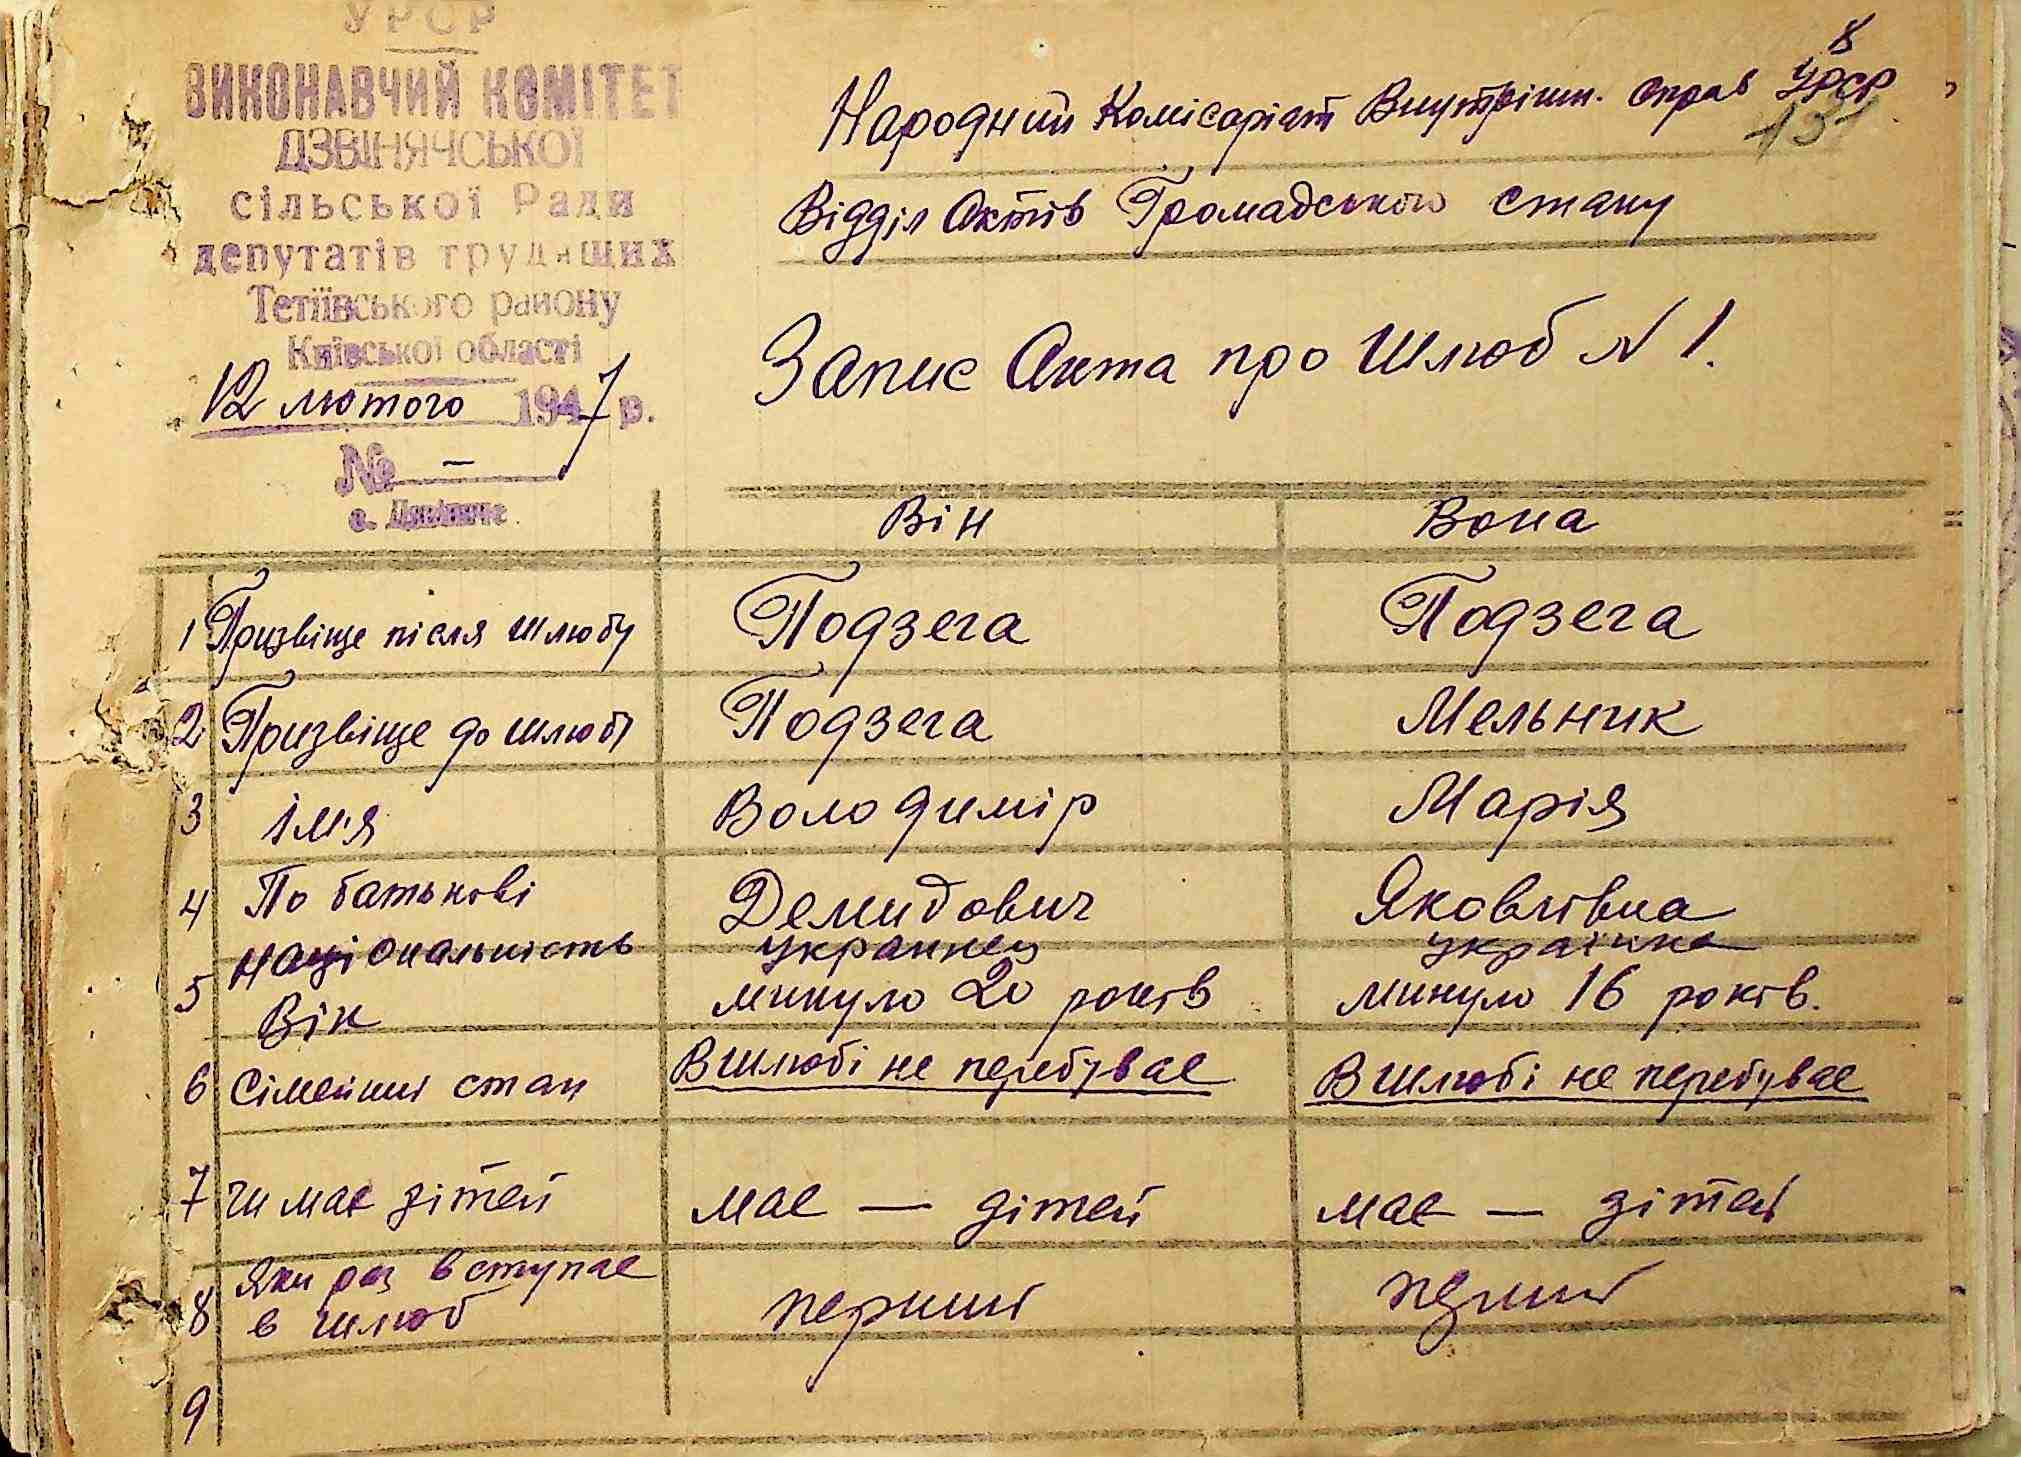 УРСР
ВИКОНАВЧИЙ КОМІТЕТ
ДЗВІНЯЧСЬКОЇ
сільської Ради
депутатів трудящих
Тетіївського району
Київської області
12 лютого 1947 р.
№ —
с. Дзвіняче
8
Народний Комісаріат Внутрішн. Справ УРСР
131
Відділ Актів Громадського стану
Запис Акта про Шлюб N 1.
Він Вона
1 Призвіще після шлюбу Подзега Подзега
2 Призвіще до шлюбу Подзега Мельник
3 ім'я Володимір Марія
4 По батькові Демидович Яковлівна
національність украинец українка
5 Вік минуло 20 років минуло 16 років.
6 Сімейний стан В шлюбі не перебуває В шлюбі не перебуває
7 чи має дітей має — дітей має — дітей
8 Який раз вступає
в шлюб перший перший
9